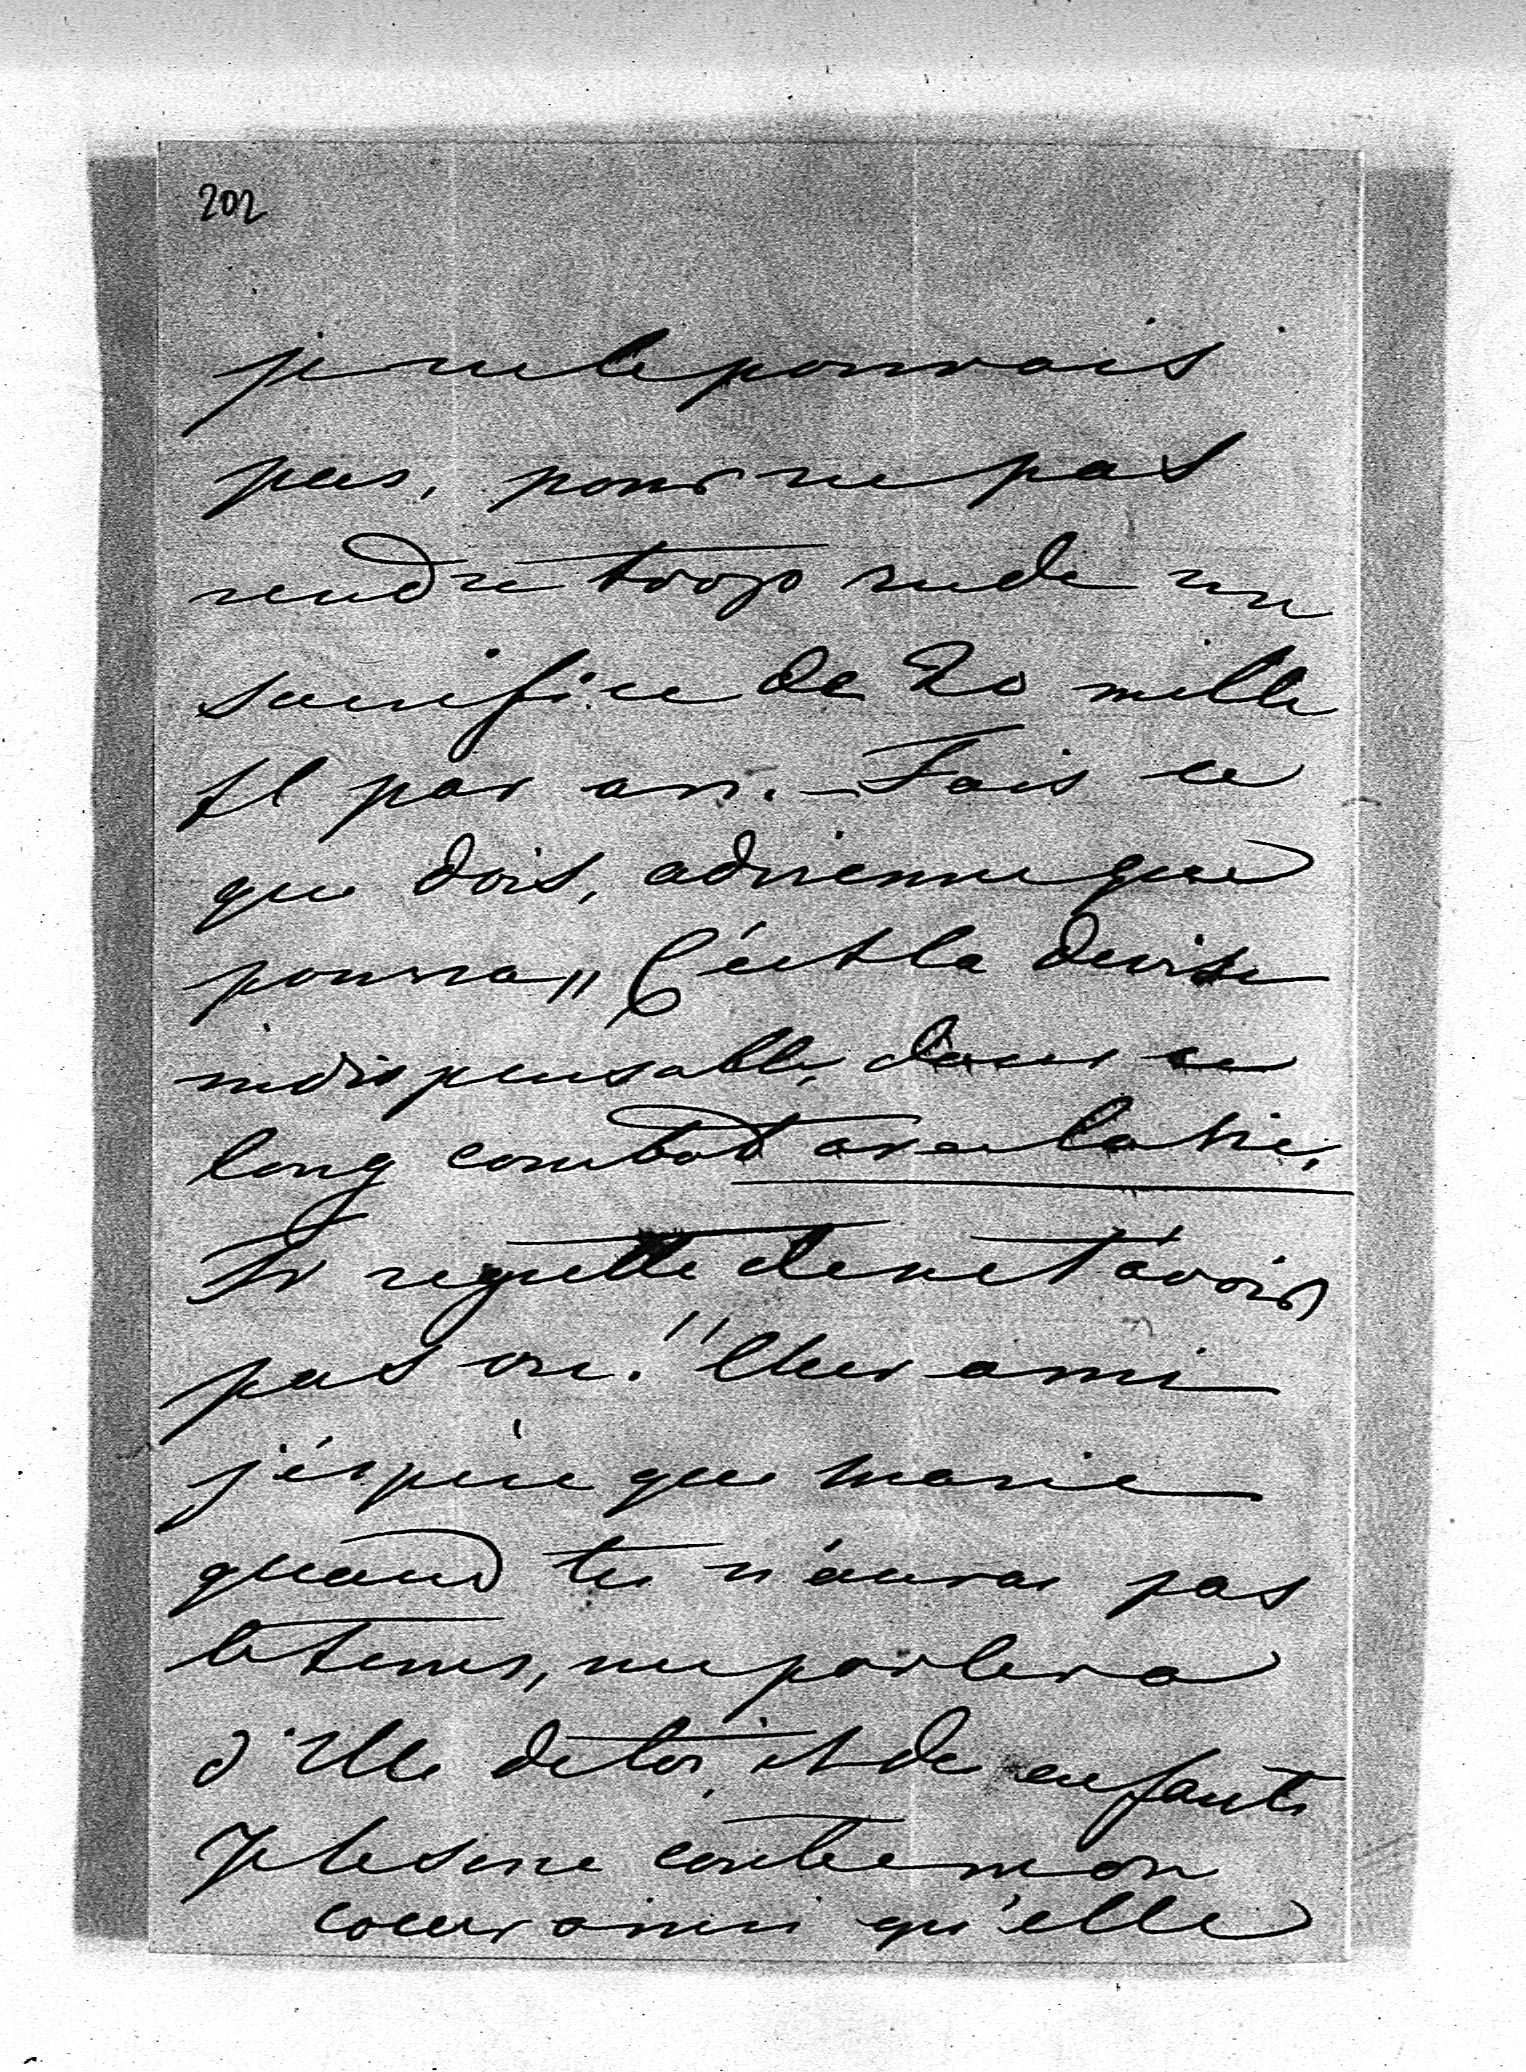 202
je ne le pouvais
pas, pour ne pas
rendre trop rude un
sacrifice de 20 mille
fl par an. – Fais ce
que dois, advienne que
pourra„ C'ést la devise
indispensable, dans ce
long combat avec la vie.
Je regrette de ne t'avoir
pas vu. " Cher ami
j'éspère que Marie
quand tu n'auras pas
le tems, me parlera
d'elle de toi et de enfants
Je le serre contre mon
coeur ainsi qu'elle